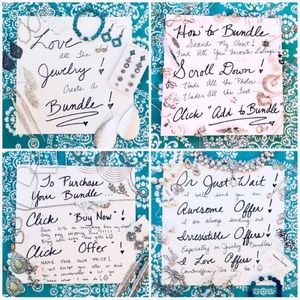 Love
All The
Jewelry!
Create A
Bundle
How to Bundle
Search My Closet!
Find All Your Favorite
Scroll Down
Under All the Photos
Under All the Text
Click "Add to Bundle
To Purchase
Your Bundle
Click "Buy Now"!
Click Offer!
Make Your Own Price!
Or Just Wait!
I will send you an
Awesome Offer!
I am always sending out
Irresistible Offers!
Especially on Jewelry Bundles
I Love Offers!